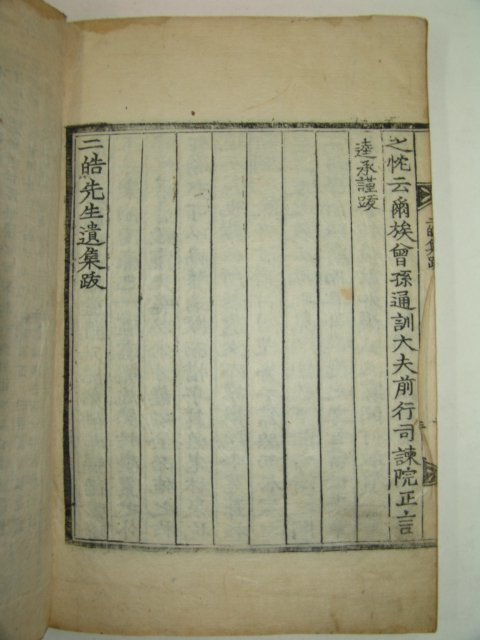 之忱云爾族曾孫通訓大夫前行司諫院正言
逵承謹跋
二皓先生遺集跋